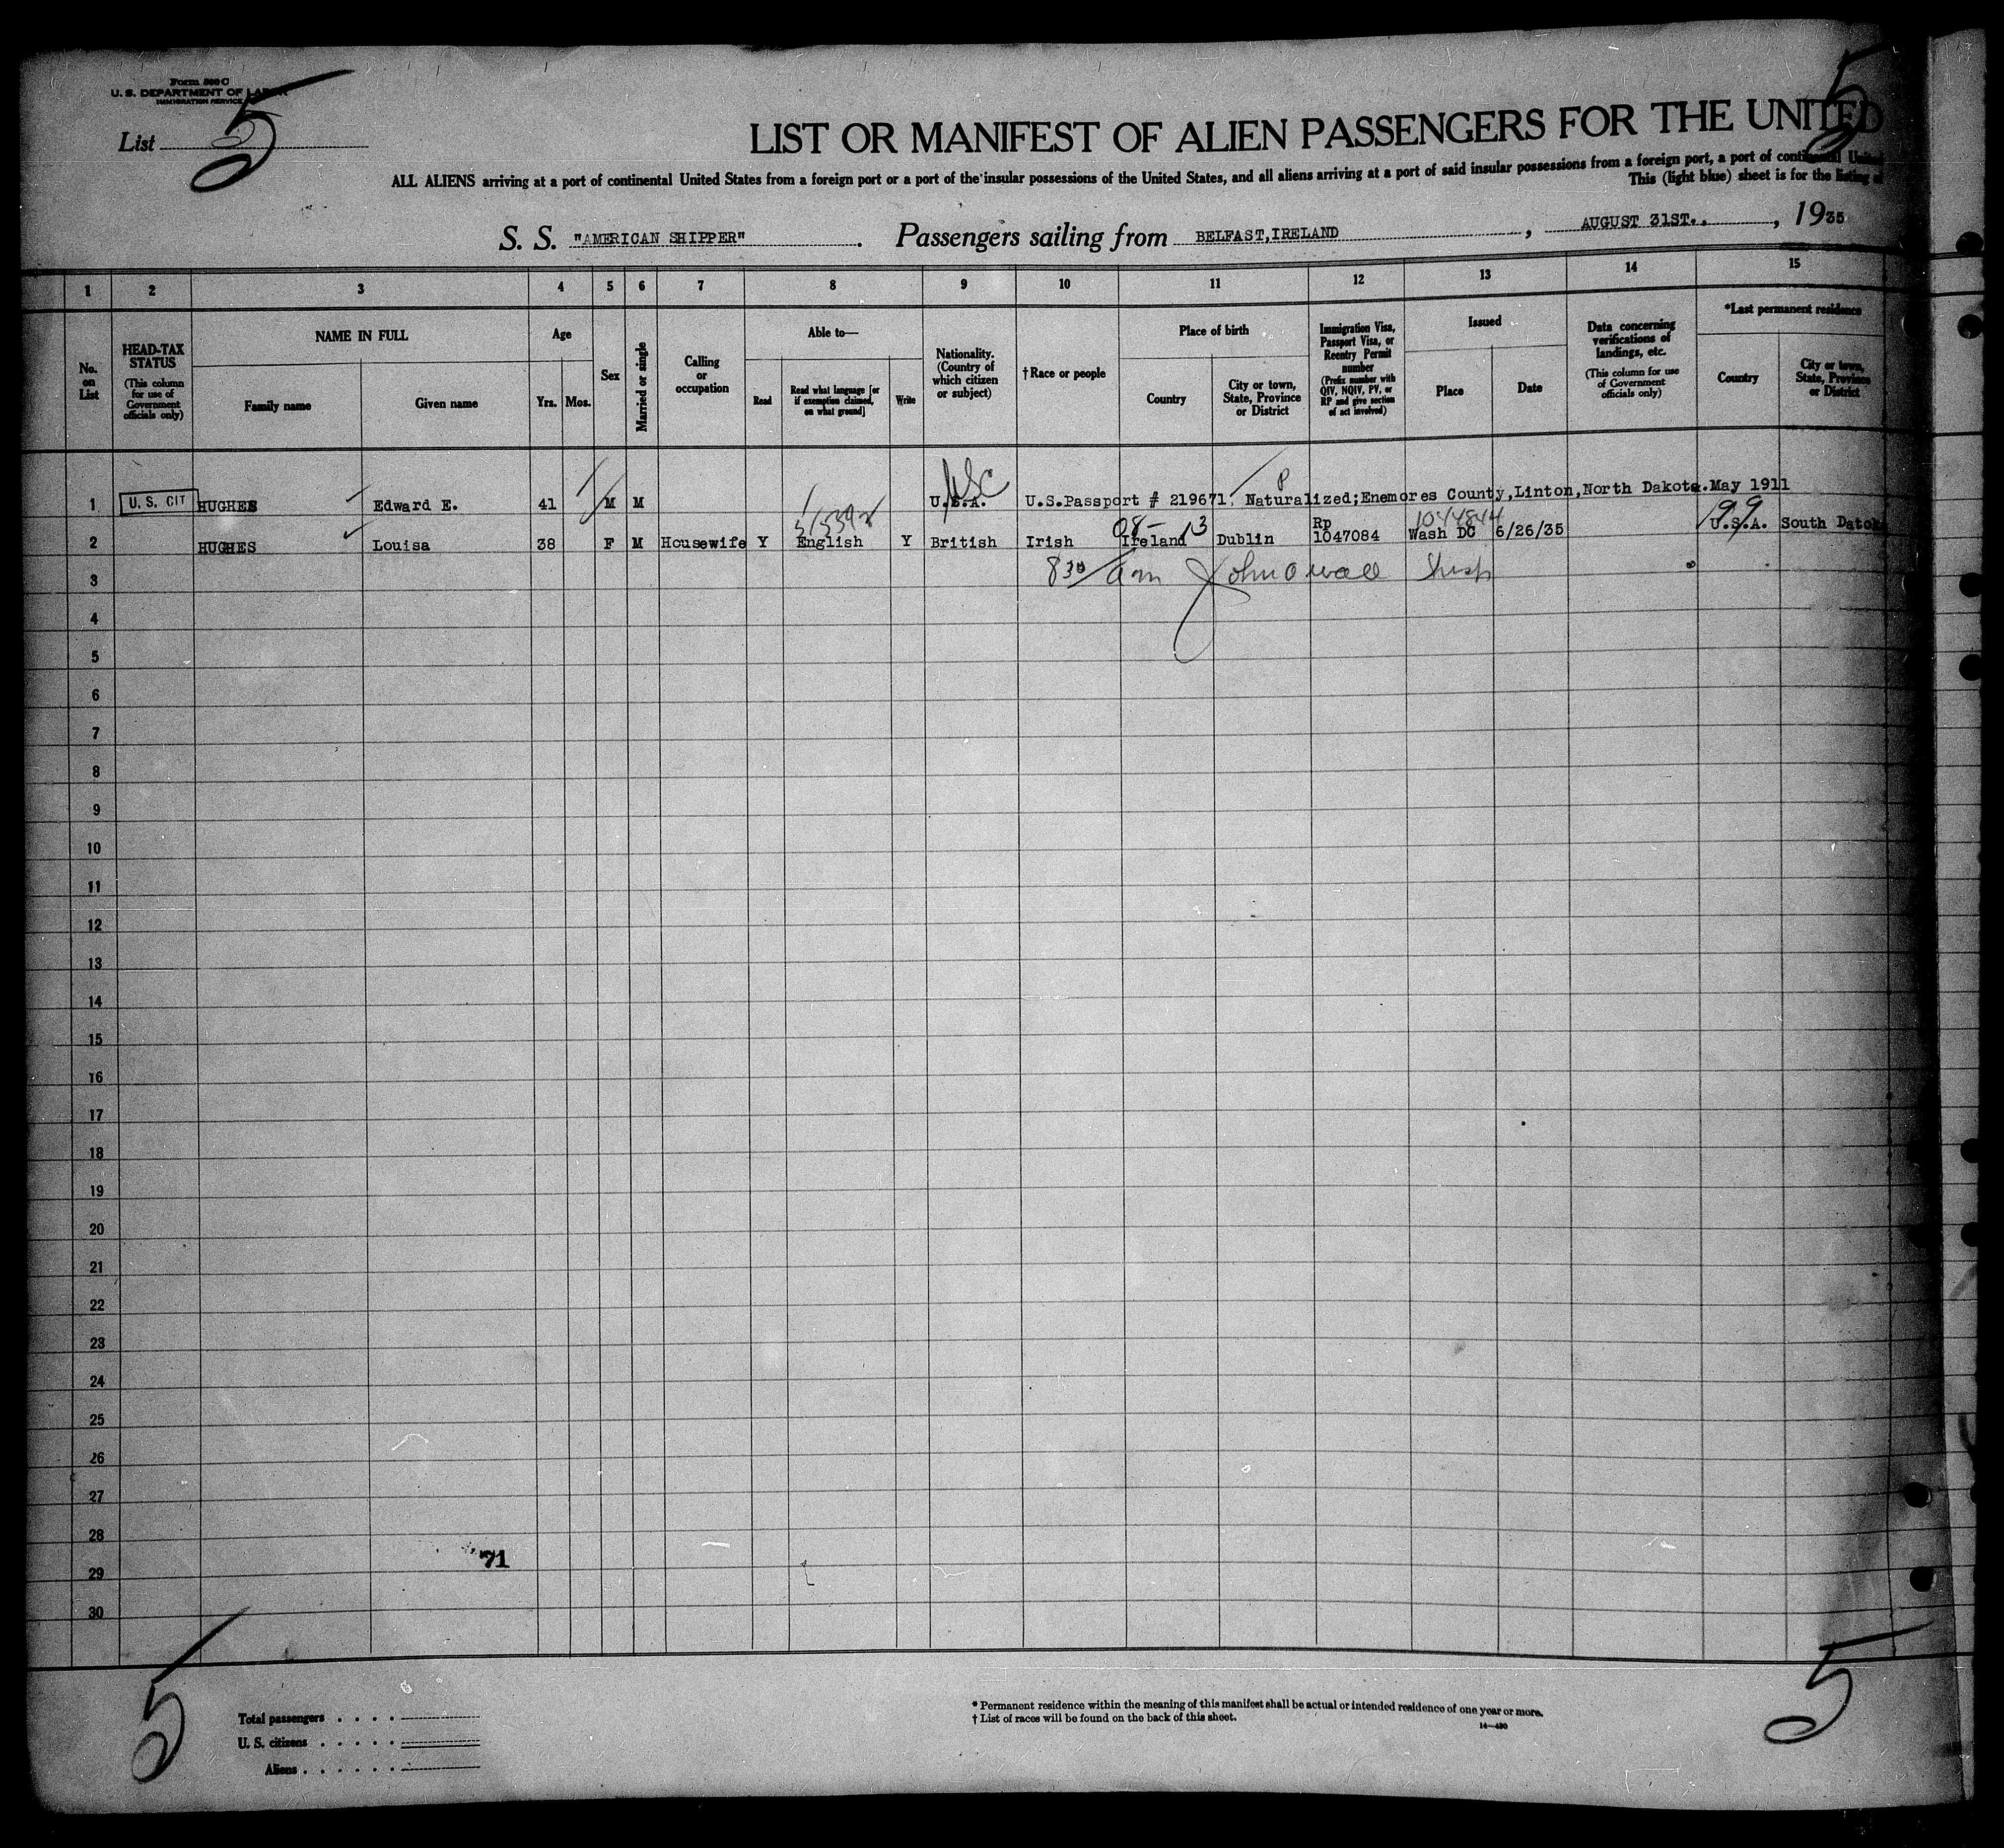 Form 500 C
U. S. DEPARTMENT OF LABOR
IMMIGRATION SERVICE
List 5
5
LIST OR MANIFEST OF ALIEN PASSENGERS FOR THE UNITED
ALL ALIENS arriving at a port of continental United States from a foreign port or a port of the insular possessions of the United States, and all aliens arriving at a port of said insular possessions from a foreign port, a port of continental United
This (light blue) sheet is for the listing of
S. S. "AMERICAN SHIPPER". Passengers sailing from BELFAST, IRELAND, AUGUST 31ST., 1935
1 2 3 4 5 6 7 8 9 10 11 12 13 14 15
No. on List
HEAD-TAX STATUS (This column for use of Government officials only)
NAME IN FULL
Family name
Given name
Age
Yrs.
Mos.
Sex
Married or single
Calling or occupation
Able to—
Read
Read what language [or if exemption claimed, on what ground]
Write
Nationality. (Country of which citizen or subject)
†Race or people
Place of birth
Country
City or town, State, Province or District
Immigration Visa, Passport Visa, or Reentry Permit number (Prefix number with QIV, NQIV, PV, or RP and give section of act involved)
Issued
Place
Date
Data concerning verifications of landings, etc. (This column for use of Government officials only)
*Last permanent residence
Country
City or town, State, Province or District
USC
P
1 U. S. CIT HUGHES Edward E. 41 M M U.S.A. U.S.Passport # 219671. Naturalized;Enemores County,Linton,North Dakota.May 1911
08- 13 1044844 99
2 HUGHES Louisa 38 F M Housewife Y English Y British Irish Ireland Dublin Rp 1047084 Wash DC 6/26/35 U.S.A. South Datok
3 8 30 am
4
5
6
7
8
9
10
11
12
13
14
15
16
17
18
19
20
21
22
23
24
25
26
27
28
71
29
30
5
5
Total passengers
U. S. citizens
Aliens
* Permanent residence within the meaning of this manifest shall be actual or intended residence of one year or more.
† List of races will be found on the back of this sheet.
14—430